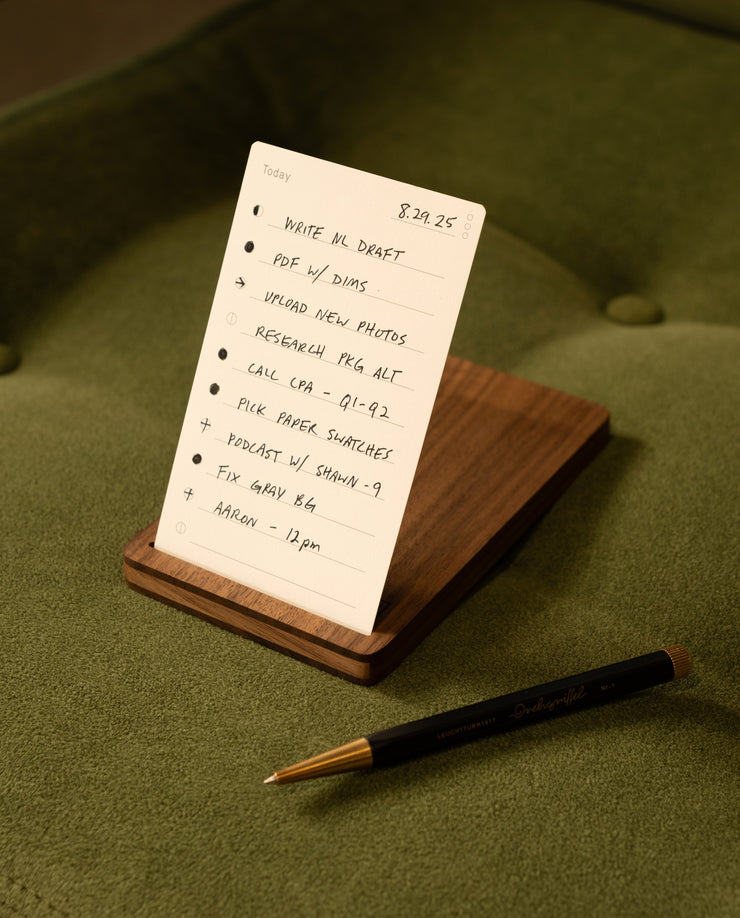 Today
8.29.25
WRITE NL DRAFT
PDF W/ DIMS
UPLOAD NEW PHOTOS
RESEARCH PKG ALT
CALL CPA - Q1-Q2
PICK PAPER SWATCHES
PODCAST W/ SHAWN - 9
FIX GRAY BG
AARON - 12pm
LEUCHTTURM1917 Drehgriffel Nr. 1